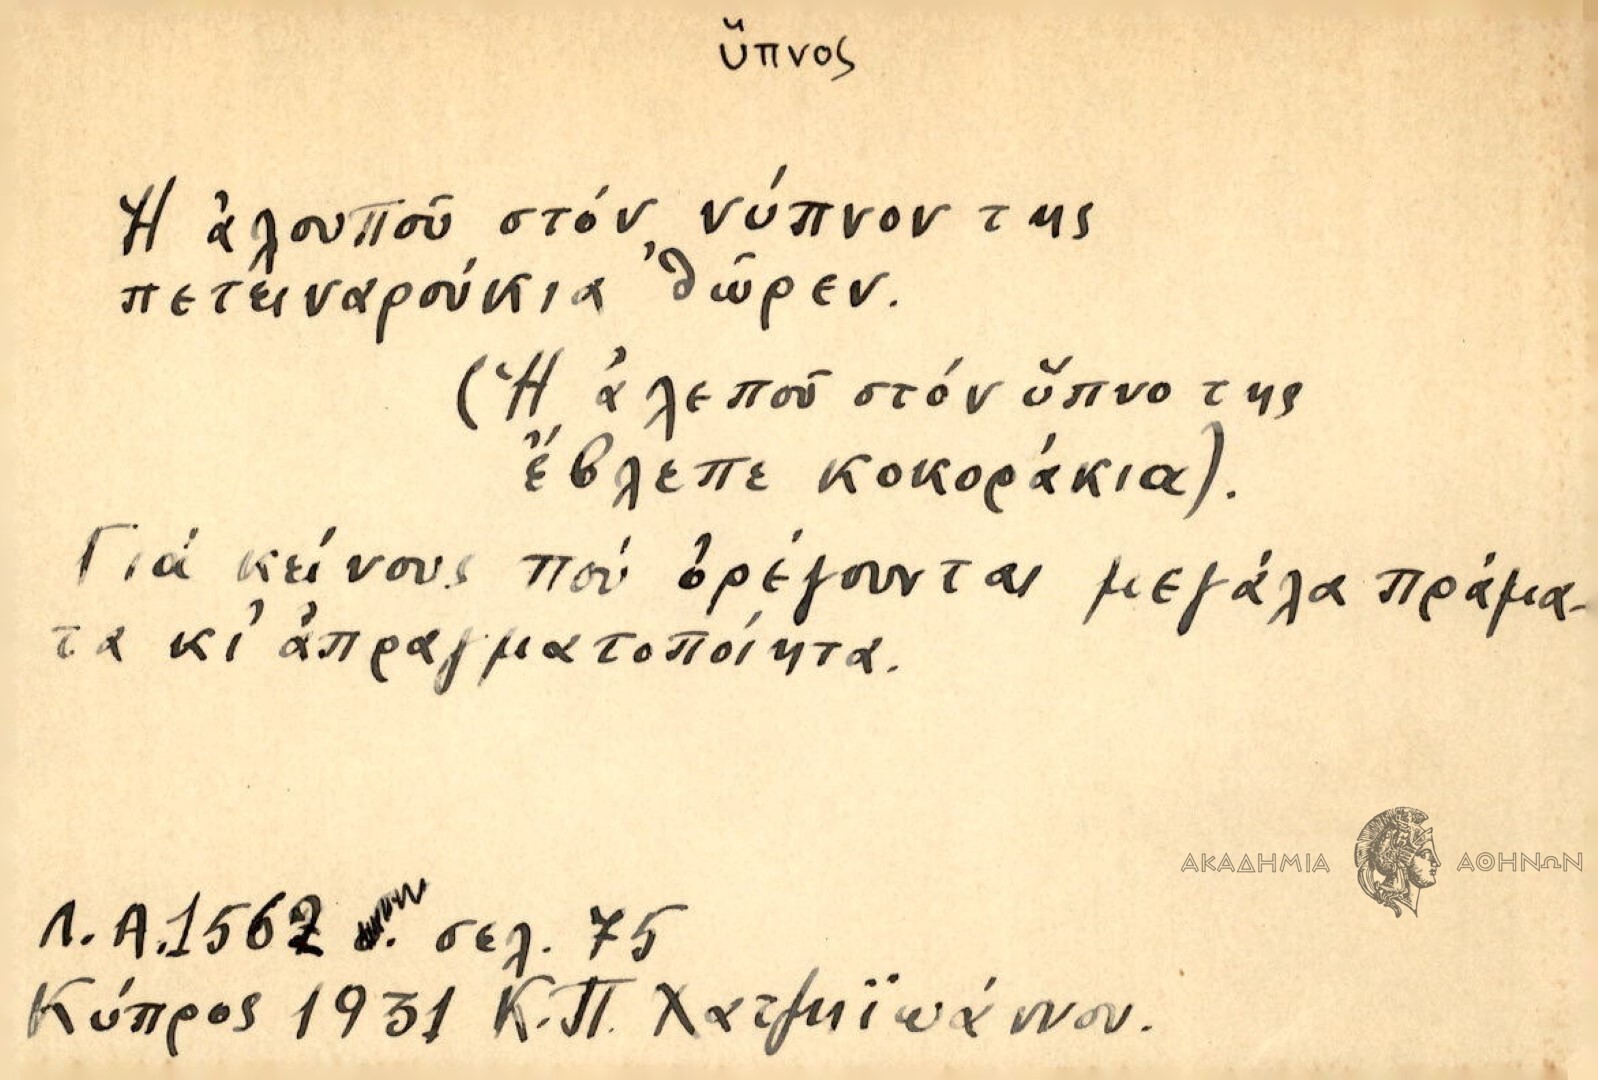 ὕπνος
Ἡ ἀλουποῦ στόν νύπνον της
πετειναρούκια ᾿θῶρεν.
(Ἡ ἀλεποῦ στόν ὕπνο της
ἔβλεπε κοκοράκια).
Γιά κείνους πού ὀρέγουνται μεγάλα πράμα-
τα κι᾿ ἀπραγματοποίητα.
ΑΚΑΔΗΜΙΑ ΑΘΗΝΩΝ
Λ.Α.1562 σελ. 75
Κύπρος 1931 Κ.Π. Χατζηϊωάννου.